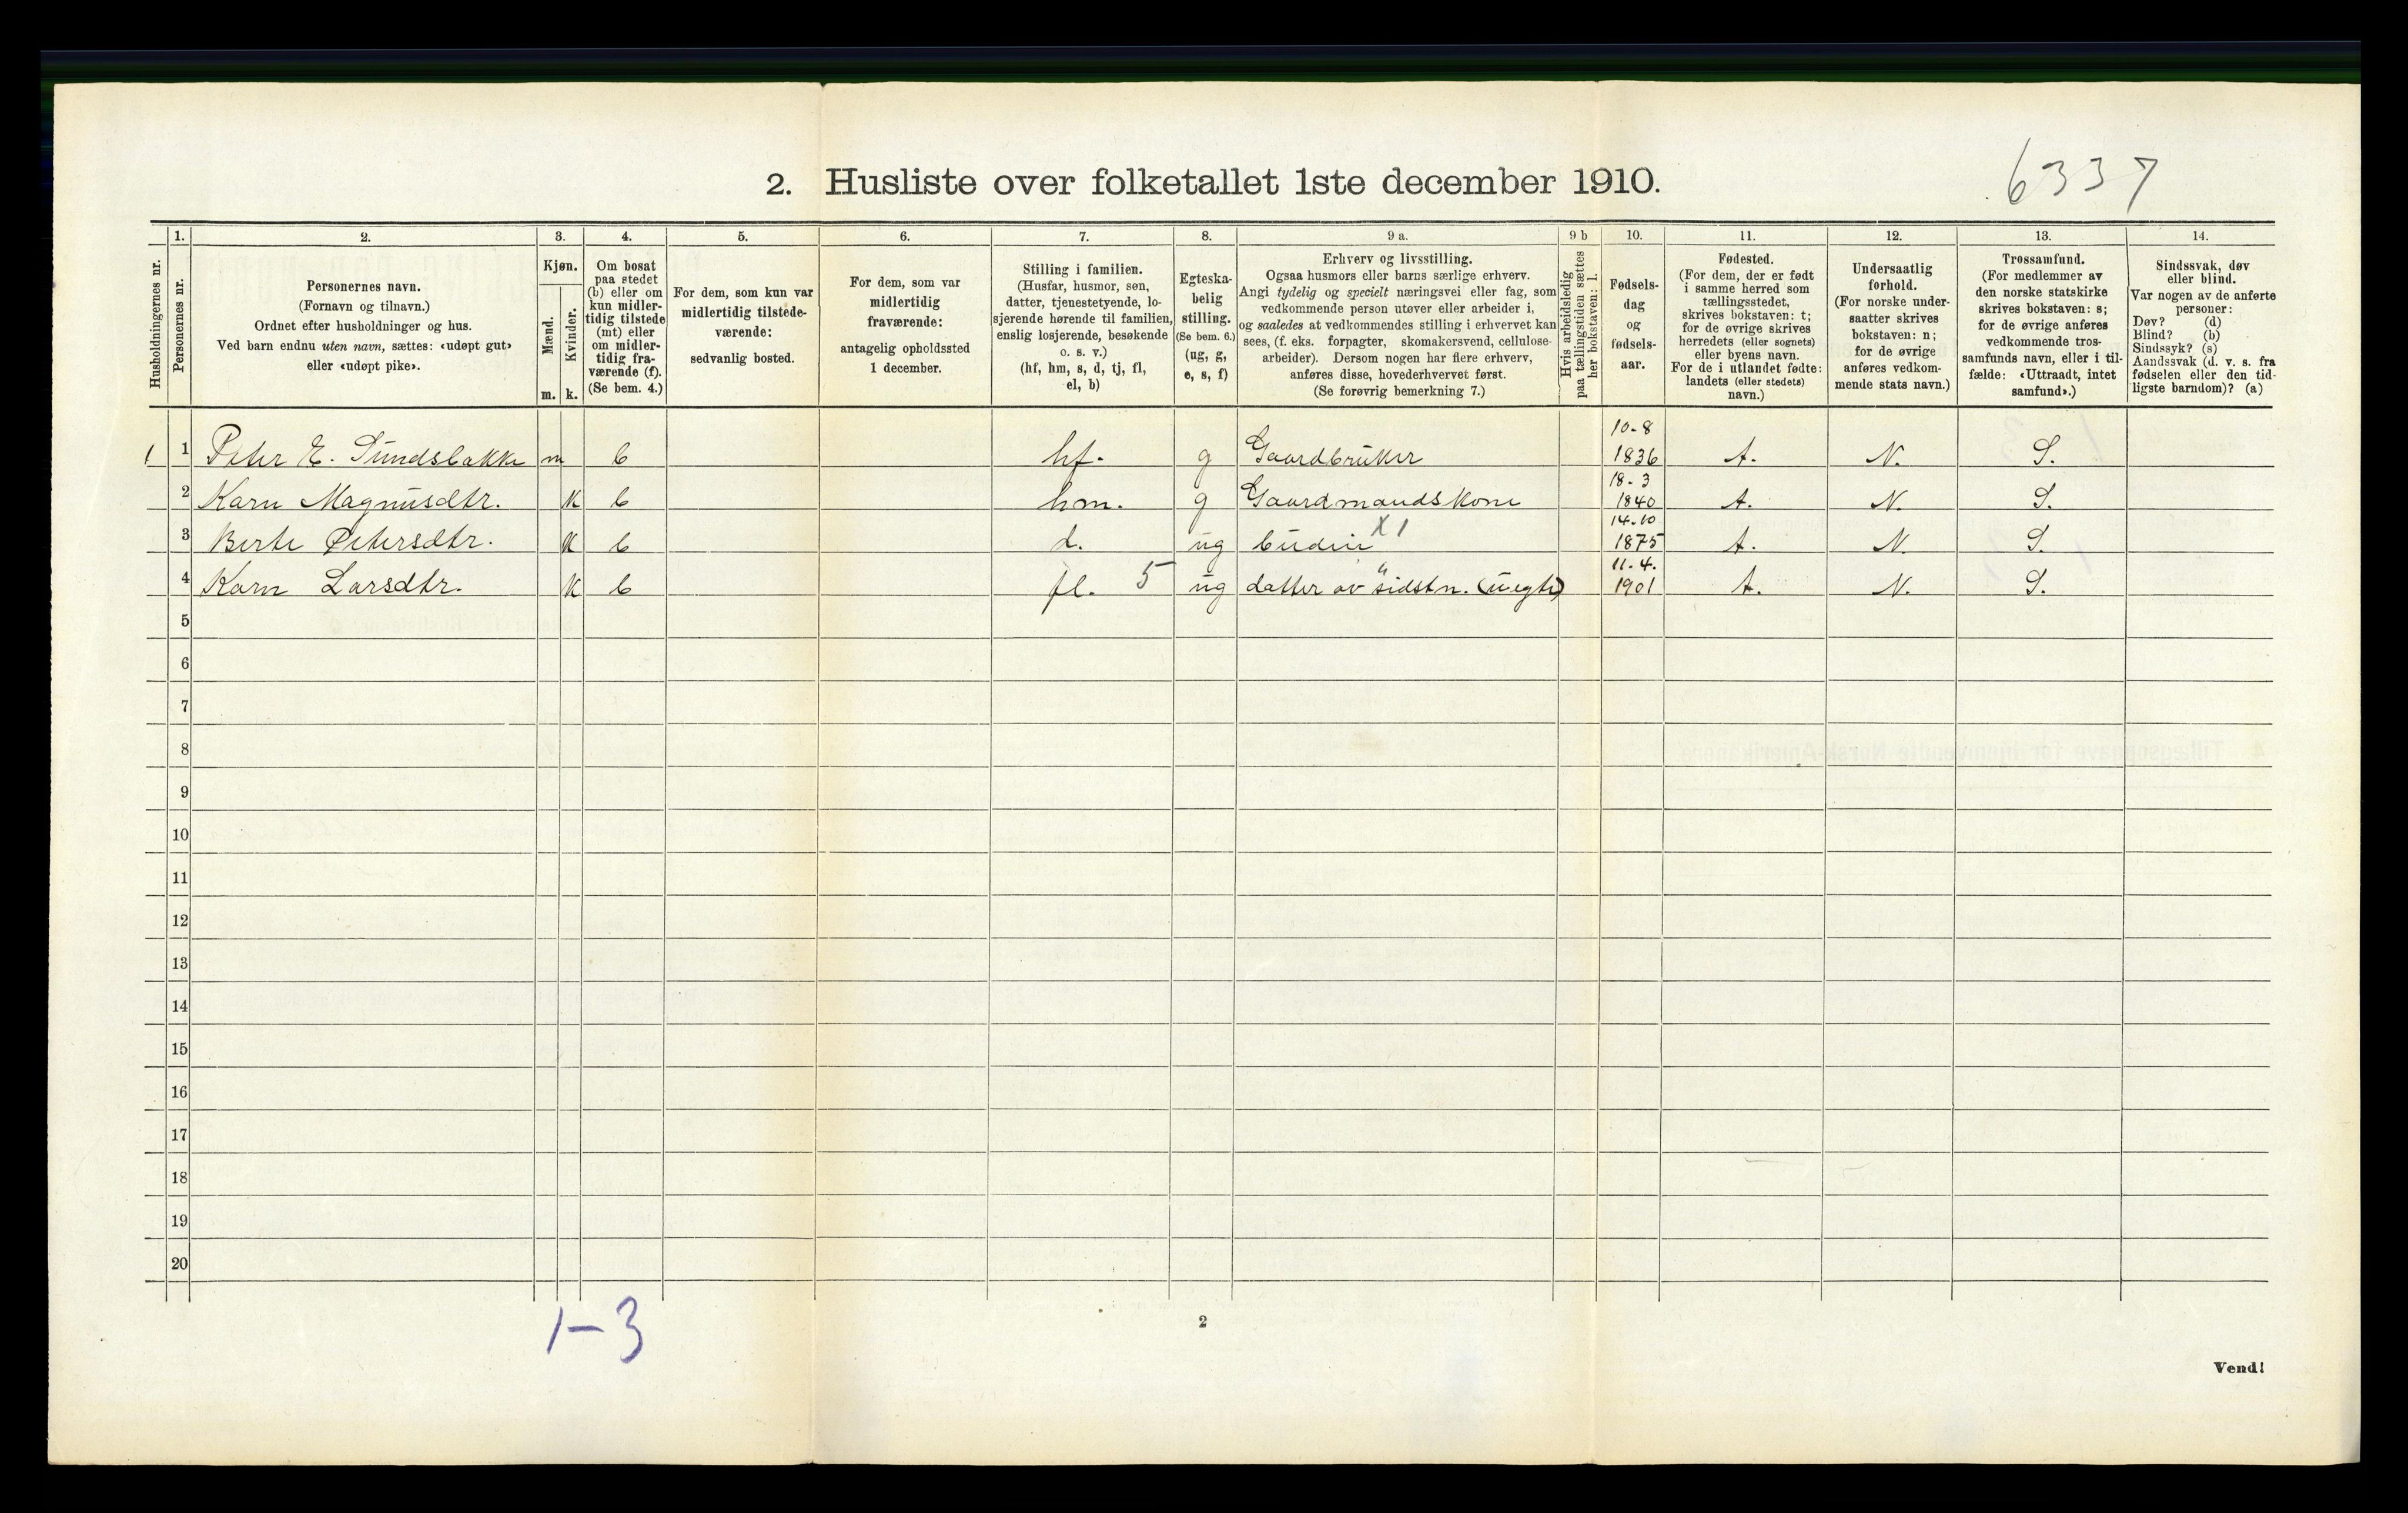 2. Husliste over folketallet 1ste december 1910.
6337
Husholdningernes nr.
1.
Personernes nr.
2.
Personernes navn.
(Fornavn og tilnavn.)
Ordnet efter husholdninger og hus.
Ved barn endnu uten navn, sættes: «udøpt gut»
eller «udøpt pike».
3.
Kjøn.
Mænd.
Kvinder.
m. k.
4.
Om bosat
paa stedet
(b) eller om
kun midler-
tidig tilstede
(mt) eller
om midler-
tidig fra-
værende (f).
(Se bem. 4.)
5.
For dem, som kun var
midlertidig tilstede-
værende:
sedvanlig bosted.
6.
For dem, som var
midlertidig
fraværende:
antagelig opholdssted
1 december.
7.
Stilling i familien.
(Husfar, husmor, søn,
datter, tjenestetyende, lo-
sjerende hørende til familien,
enslig losjerende, besøkende
o. s. v.)
(hf, hm, s, d, tj, fl,
el, b)
8.
Egteska-
belig
stilling.
(Se bem. 6.)
(ug, g,
e, s, f)
9 a.
Erhverv og livsstilling.
Ogsaa husmors eller barns særlige erhverv.
Angi tydelig og specielt næringsvei eller fag, som
vedkommende person utøver eller arbeider i,
og saaledes at vedkommendes stilling i erhvervet kan
sees, (f. eks. forpagter, skomakersvend, cellulose-
arbeider). Dersom nogen har flere erhverv,
anføres disse, hovederhvervet først.
(Se forøvrig bemerkning 7.)
9 b
Hvis arbeidsledig
paa tællingstiden sættes
her bokstaven: l.
10.
Fødsels-
dag
og
fødsels-
aar.
11.
Fødested.
(For dem, der er født
i samme herred som
tællingsstedet,
skrives bokstaven: t;
for de øvrige skrives
herredets (eller sognets)
eller byens navn.
For de i utlandet fødte:
landets (eller stedets)
navn.)
12.
Undersaatlig
forhold.
(For norske under-
saatter skrives
bokstaven: n;
for de øvrige
anføres vedkom-
mende stats navn.)
13.
Trossamfund.
(For medlemmer av
den norske statskirke
skrives bokstaven: s;
for de øvrige anføres
vedkommende tros-
samfunds navn, eller i til-
fælde: «Uttraadt, intet
samfund».)
14.
Sindssvak, døv
eller blind.
Var nogen av de anførte
personer:
Døv? (d)
Blind? (b)
Sindssyk? (s)
Aandssvak (d. v. s. fra
fødselen eller den tid-
ligste barndom)? (a)
1 1 Peter E. Sundsbakke m b hf. g Gaardbruker 10-8 1836 t. N. S.
2 Karn Magnusdtr. K b hm. g Gaardmandskone 18-3 1840 t. N. S.
3 Berte Petersdtr. K b d. ug budeie X1 14-10 1875 t. N. S.
4 Karn Larsdtr. K b fl. 5 ug datter av sidstn. (uegte) 11-4. 1901 t. N. S.
5
6
7
8
9
10
11
12
13
14
15
16
17
18
19
20
1-3
2
Vend!